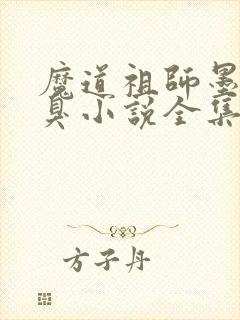 魔道祖師墨
臭小說全集
方子丹